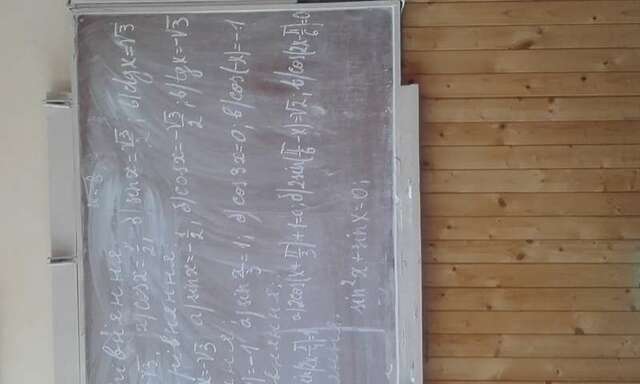 рівняння:
√3, а) cos x = 1/2, б) sin x = √3/2; в) ctg x = √3
рівняння:
x = -√3 а) sin x = -1/2, б) cos x = -√3/2; в) tg x = -√3
ння;
= -1 а) sin x/3 = 1; б) cos 3x = 0; в) cos(-x) = -1
вняння.
sin(2x - π/ а) 2cos(x + π/3) + 1 = 0; б) 2sin(π/6 - x) = √2; в) cos(2x - π/6) = 0
яння.
sin²x + sin x = 0;